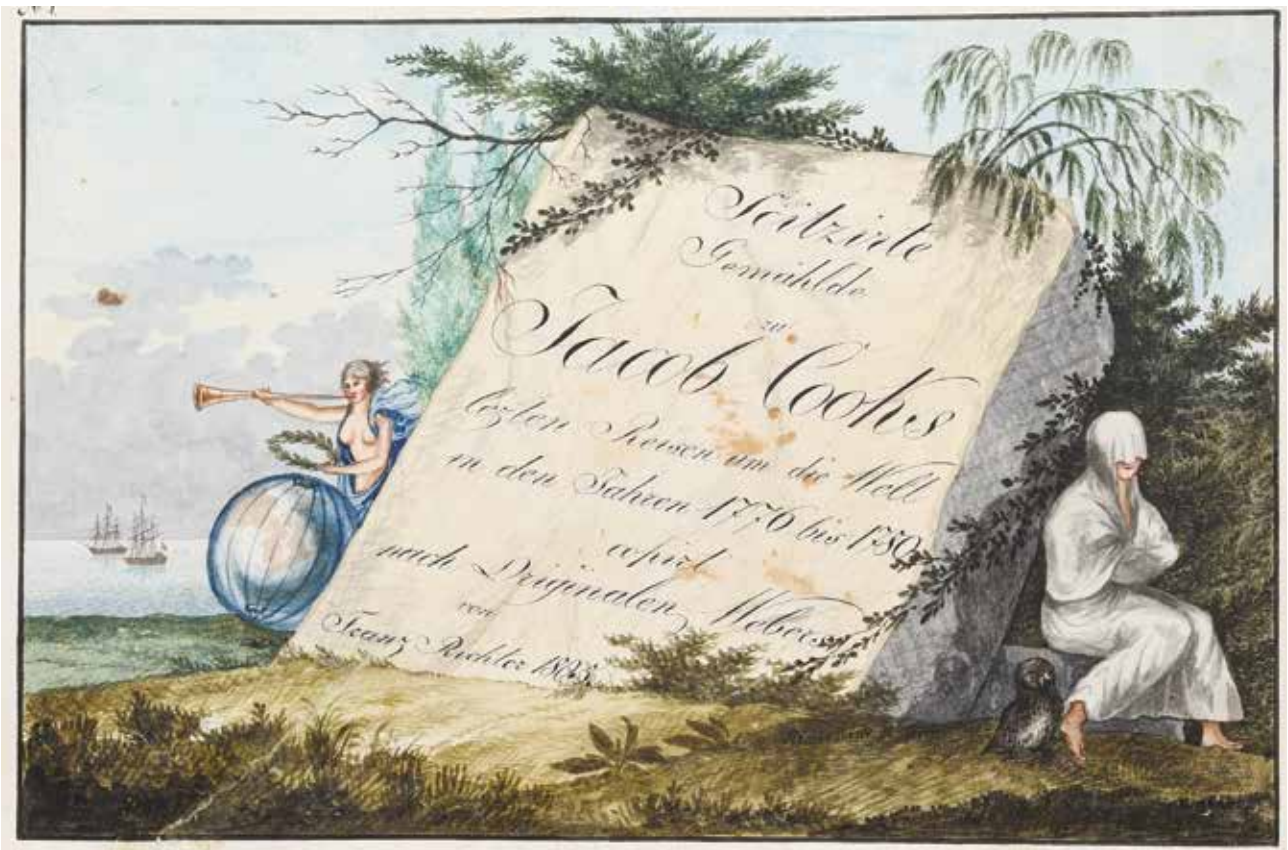 Scitzirte
Gemählde
zu
Jacob Cooks
lezten Reisen um die Welt
in den Jahren 1776 bis 1780
copirt
nach Originalen Webers
von
Franz Richter 1803